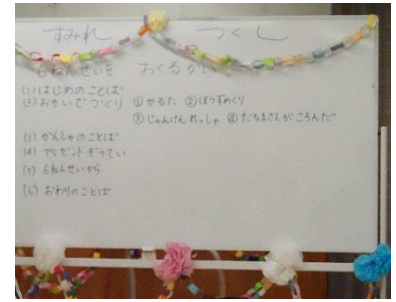 すみれ つくし
6ねんせいを おくるかい
(1) はじめのことば
(2) おもいでづくり ① かるた ② ぼうずめくり
③ じゃんけんれっしゃ ④ だるまさんがころんだ
(3) かんしゃのことば
(4) プレゼントぞうてい
(5) 6ねんせいから
(6) おわりのことば